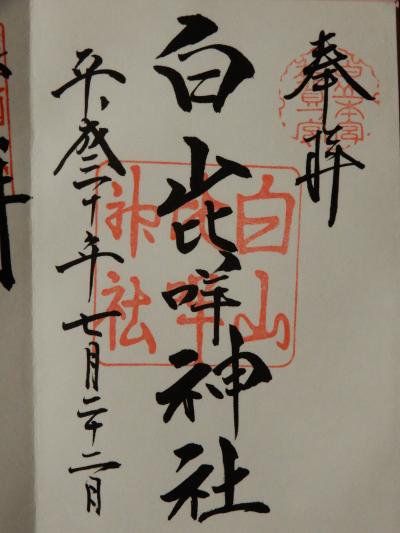 奉拝
白山比咩神社
平成二十年七月二十二日
白山
比咩
神社